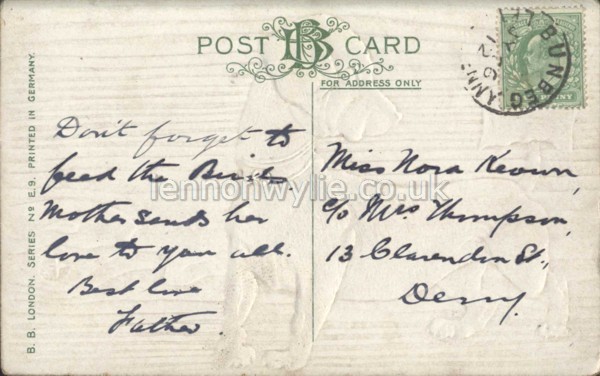 POST CARD
BB
FOR ADDRESS ONLY
BUNBEG
B. B. LONDON. SERIES Nº E.9. PRINTED IN GERMANY.
Don't forget to
feed the Birds.
Mother sends her
love to you all.
Best love
Father.
Miss Nora Keown,
c/o Mrs Thompson,
13 Clarendon St.,
Derry.
lennonwylie.co.uk